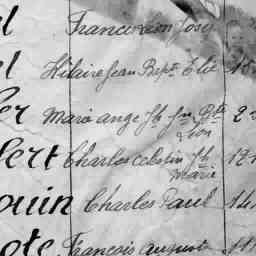 l Franceicon Josep
el Hilaire Jean Bapt. Elie 15
er Marie ange Jh Jn Bte 2
Leon
bert Charles celestin Jh 17
Marie
ouin Charles Paul 14
ote François auguste 11